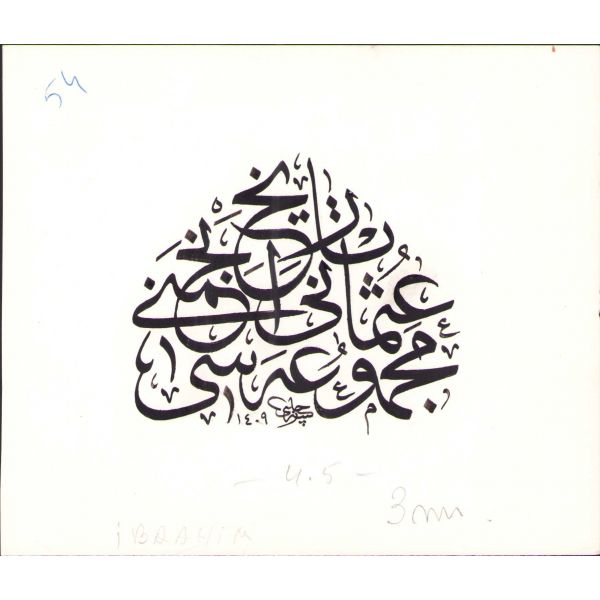 54
تاريخ
عثمانى انجمنى
مجموعه سى
١٤٠٩
- 4.5 -
3mm.
İBRAHİM